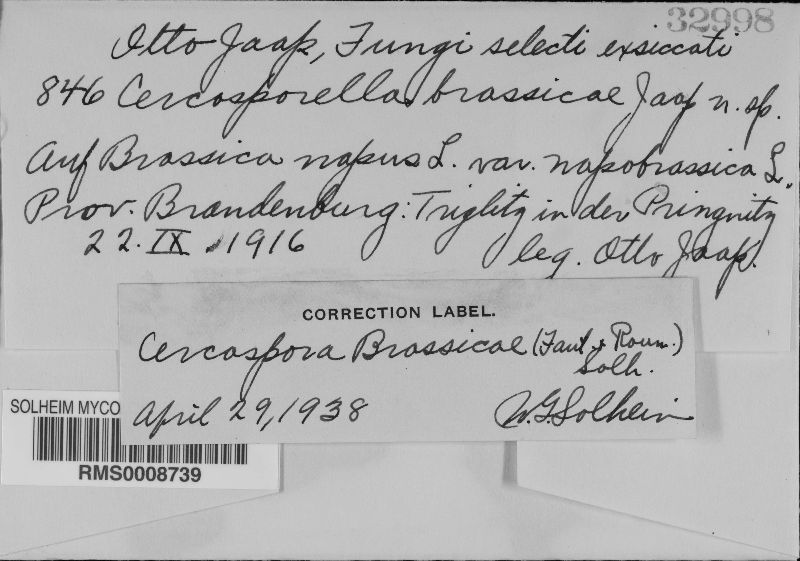 32998
Otto Jaap, Fungi selecti exsiccati
846 Cercosporella brassicae Jaap n. sp.
Auf Brassica napus L. var. napobrassica L.
Prov. Brandenburg: Triglitz in der Pringnitz
22. IX. 1916 leg. Otto Jaap.
CORRECTION LABEL.
Cercospora Brassicae (Faut. & Roum.)
Solh.
April 29, 1938 W.G. Solheim
SOLHEIM MYCO
RMS0008739